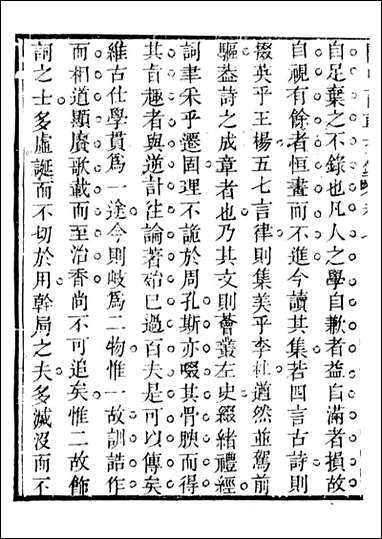 自足棄之不錄也凡人之學自歉者益自滿者損故
自視有餘者恒畫而不進今讀其集若四言古詩則
掇英乎王楊五七言律則集美乎李杜遒然並駕前
驅葢詩之成章者也乃其文則薈叢左史綴緒禮經
詞聿采乎遷固理不詭於周孔斯亦啜其骨腴而得
其旨趣者與逆計徃論著始巳過百夫是可以傳矣
維古仕學貫爲一途今則歧爲二物惟一故訓誥作
而相道顯賡歌載而至治香尚不可追矣惟二故飾
詞之士多虛誕而不切於用幹局之夫多滅沒而不